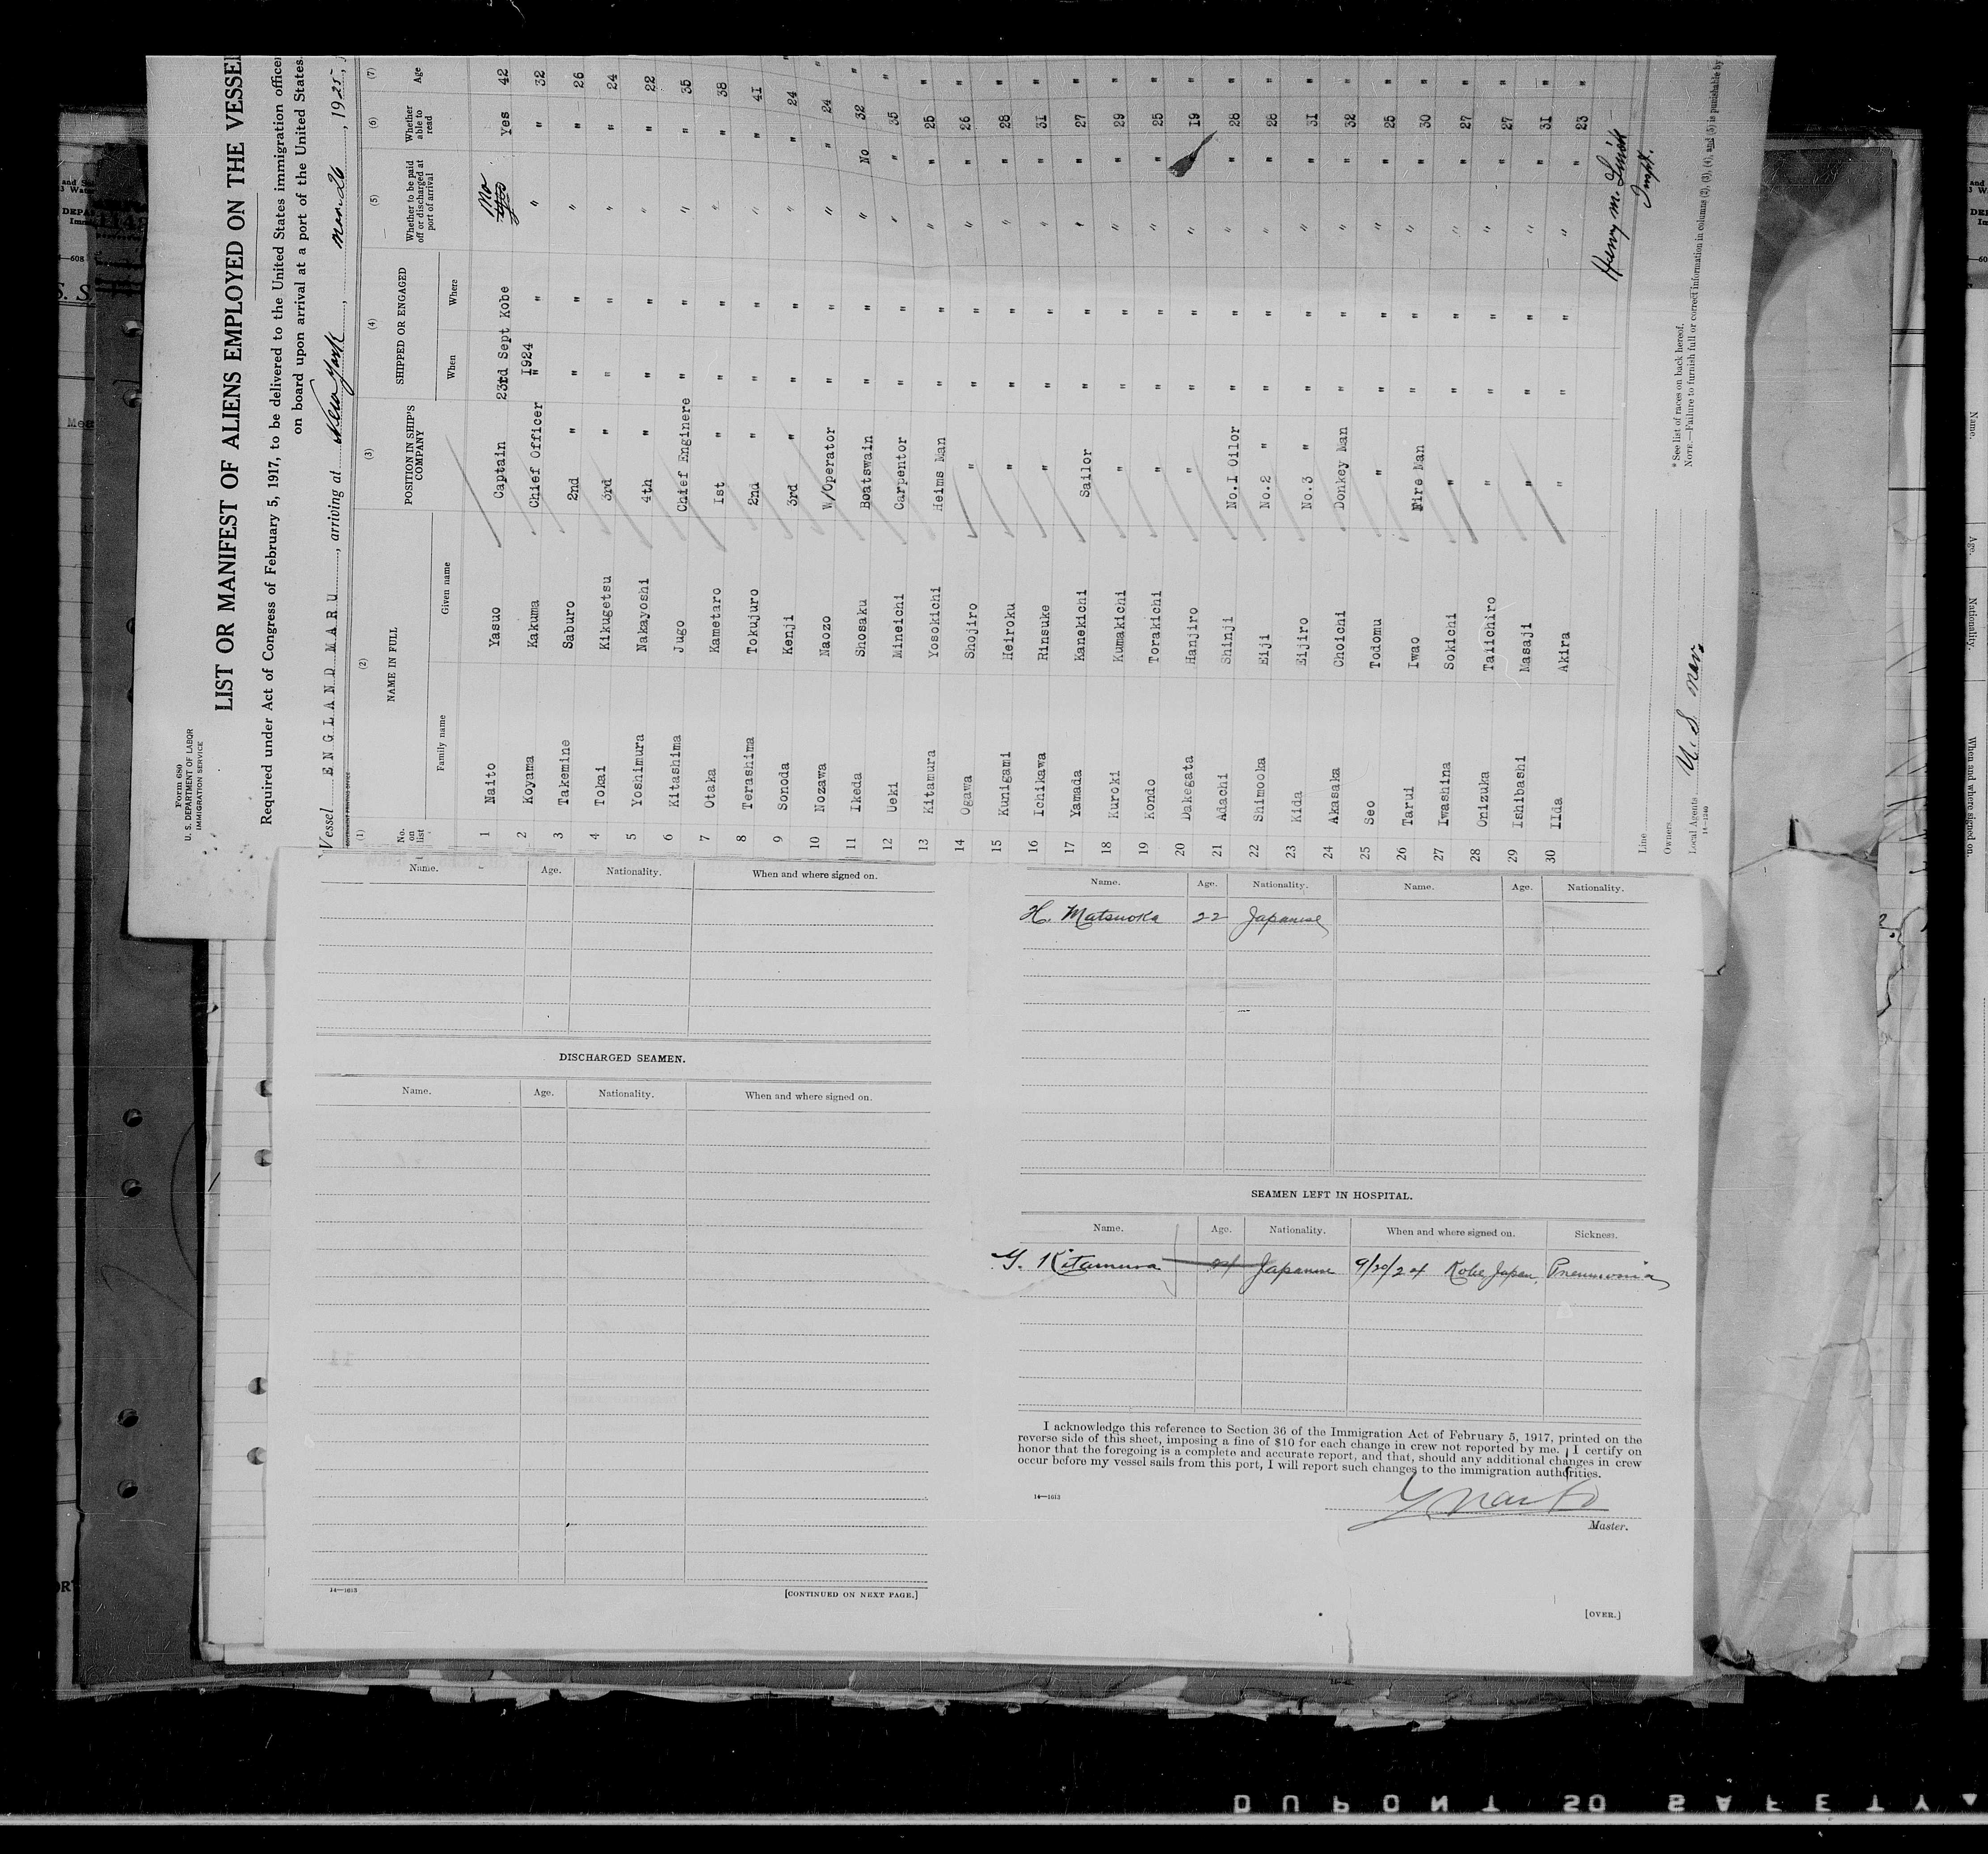 Form 680
U. S. DEPARTMENT OF LABOR
IMMIGRATION SERVICE
LIST OR MANIFEST OF ALIENS EMPLOYED ON THE VESSEL
Required under Act of Congress of February 5, 1917, to be delivered to the United States immigration officer
on board upon arrival at a port of the United States
Vessel ENGLAND MARU, arriving at New York, Mar. 26, 1925,
(1) (2) (3) (4) (5) (6) (7)
No. on list NAME IN FULL POSITION IN SHIP'S COMPANY SHIPPED OR ENGAGED Whether to be paid off or discharged at port of arrival Whether able to read Age
Family name Given name When Where
1 Naito Yasuo Captain 23rd Sept 1924 Kobe No Yes 42
2 Koyama Kakuma Chief Officer " " " " 32
3 Takemine Saburo 2nd " " " " " 26
4 Tokai Kikugetsu 3rd " " " " " 24
5 Yoshimura Nakayoshi 4th " " " " " 22
6 Kitashima Jugo Chief Enginere " " " " 35
7 Otaka Kametaro Ist " " " " " 38
8 Terashima Tokujuro 2nd " " " " " 41
9 Sonoda Kenji 3rd " " " " " 24
10 Nozawa Naozo W/Operator " " " " 24 "
11 Ikeda Shosaku Boatswain " " " No 32 "
12 Ueki Mineichi Carpentor " " " " 35 "
13 Kitamura Yosokichi Helms Man " " " " 25 "
14 Ogawa Shojiro " " " " " 26 "
15 Kunigami Heiroku " " " " " 28 "
16 Ichikawa Rinsuke " " " " " 31 "
17 Yamada Kanekichi Sailor " " " " 27 "
18 Kuroki Kumakichi " " " " " 29 "
19 Kondo Torakichi " " " " " 25 "
20 Dakegata Hanjiro " " " " 19 "
21 Adachi Shinji No.1 Oilor " " " " 28 "
22 Shimooka Eiji No.2 " " " " " 28 "
23 Kida Eijiro No.3 " " " " " 31 "
24 Akasaka Choichi Donkey Man " " " " 32 "
25 Seo Todomu " " " " " 25 "
26 Tarui Iwao Fire Man " " " " 30 "
27 Iwashina Sokichi " " " " " 27 "
28 Onizuka Taiichiro " " " " " 27 "
29 Ishibashi Masaji " " " " " 31 "
30 Iida Akira " " " " " 23 "
Line
Owners
Local Agents
14-1240
* See list of races on back hereof.
NOTE.—Failure to furnish full or correct information in columns (2), (3), (4), and (5) is punishable by
Name. Age. Nationality. When and where signed on.
DISCHARGED SEAMEN.
Name. Age. Nationality. When and where signed on.
14—1613
[CONTINUED ON NEXT PAGE.]
Name. Age. Nationality. Name. Age. Nationality.
H. Matsuoka 22 Japanese
SEAMEN LEFT IN HOSPITAL.
Name. Age. Nationality. When and where signed on. Sickness.
Y. Kitamura 24 Japanese 9/20/24 Kobe Japan. Pneumonia
I acknowledge this reference to Section 36 of the Immigration Act of February 5, 1917, printed on the
reverse side of this sheet, imposing a fine of $10 for each change in crew not reported by me. I certify on
honor that the foregoing is a complete and accurate report, and that, should any additional changes in crew
occur before my vessel sails from this port, I will report such changes to the immigration authorities.
14—1613
Y. Naito
Master.
[OVER.]
DUPONT SO SAFETY